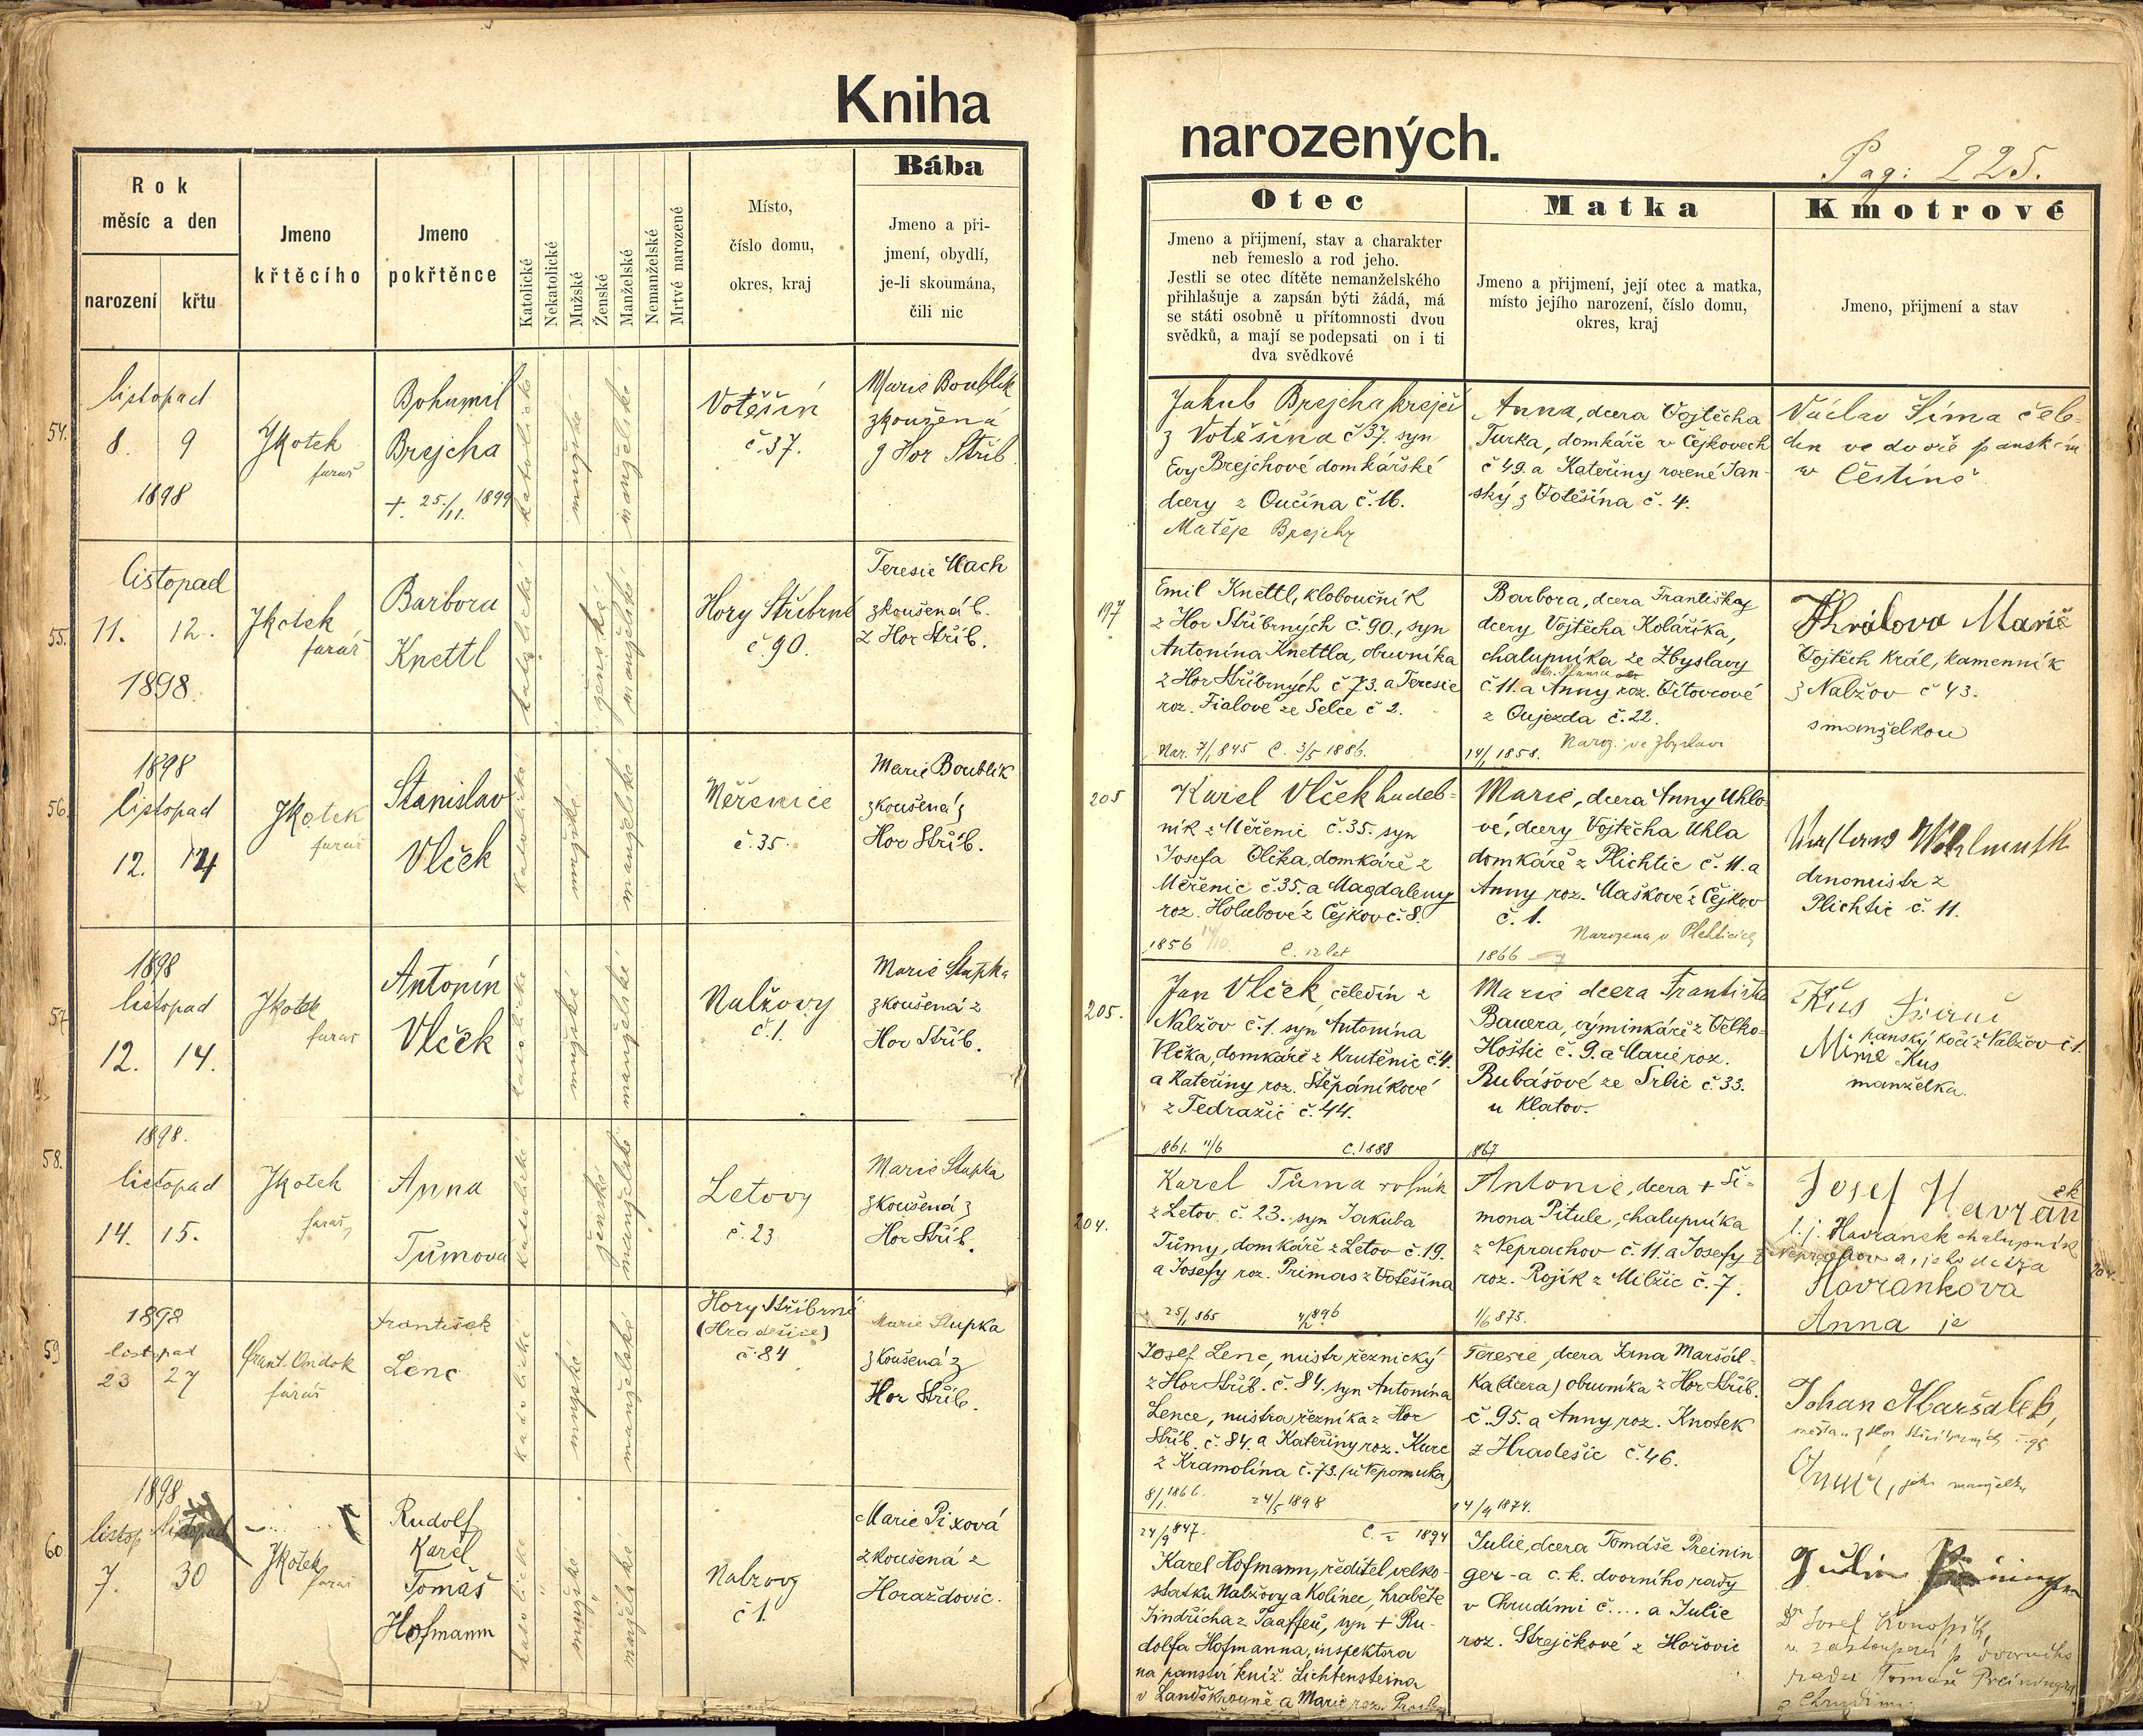 Kniha
narozených.
Pag: 225.
Rok
měsíc a den
narození
křtu
Jmeno
křtěcího
Jmeno
pokřtěnce
Katolické
Nekatolické
Mužské
Ženské
Manželské
Nemanželské
Mrtvé narozené
Místo,
číslo domu,
okres, kraj
Bába
Jmeno a při-
jmení, obydlí,
je-li skoumána,
čili nic
Otec
Jmeno a přijmení, stav a charakter
neb řemeslo a rod jeho.
Jestli se otec dítěte nemanželského
přihlašuje a zapsán býti žádá, má
se státi osobně u přítomnosti dvou
svědků, a mají se podepsati on i ti
dva svědkové
Matka
Jmeno a přijmení, její otec a matka,
místo jejího narození, číslo domu,
okres, kraj
Kmotrové
Jmeno, přijmení a stav
54.
listopad
8. 9
1898
JKotek
farař
Bohumil
Brejcha
+ 25./11. 1899
katolické
mužské
manželské
Votěšín
č.37.
Marie Boublík
zkoušená
z Hor Stříb.
Jakub Brejcha krejčí
z Votěšína č 37. syn
Evy Brejchové domkářské
dcery z Oučína č. 16.
Matěje Brejchy
Anna, dcera Vojtěcha
Turka, domkáře v Čejkovech
č 49. a Kateřiny rozené Jan-
ský z Votěšína č. 4.
Václav Šíma čele-
dín ve dvoře panském
v Čestíně
55.
listopad
11. 12.
1898.
JKotek
farář
Barbora
Knettl
katolické
ženské
manželské
Hory Stříbrné
č. 90.
Teresie Mach
zkoušená b.
z Hor Stříb.
197
Emil Knettl, kloboučník
z Hor Stříbrných č. 90., syn
Antonína Knettla, obuvníka
z Hor Stříbrných č 73. a Teresie
roz. Fialové ze Selce č 2.
Nar. 7/1 845 C. 3/5 1886.
Barbora, dcera Františky
dcery Vojtěcha Kolaříka,
chalupníka ze Zbyslavy
č. 11. a Anny roz. Vítovcové
z Oujezda č. 22.
14/1 1858. Naroz. ve Zbyslavi
Králova Marie
Vojtěch Král, kamenník
z Nalžov č 43.
s manželkou
56.
1898
listopad
12. 14
JKotek
farař
Stanislav
Vlček
katolické
mužské
manželské
Měřenice
č. 35.
Marie Boublík
zkoušená z
Hor Stříb.
205
Karel Vlček hudeb-
ník z Měřenic č. 35. syn
Josefa Vlčka, domkáře z
Měřenic č. 35. a Magdaleny
roz. Holubové z Čejkov č. 8.
1856 14/10. C. 12 let
Marie, dcera Anny Uhlo-
vé, dcery Vojtěcha Uhla
domkáře z Plichtic č. 11. a
Anny roz. Maškové z Čejkov
č. 1.
1866 Narozena v Plichticích
drnomistr z
Plichtic č. 11.
57
1898
listopad
12. 14.
JKotek
farař
Antonín
Vlček
katolické
mužské
manželské
Nalžovy
č. 1.
Marie Stupka
zkoušená z
Hor Stříb.
205.
Jan Vlček čeledín z
Nalžov č. 1. syn Antonína
Vlčka, domkáře z Krutěnic č. 4.
a Kateřiny roz. Štěpáníkové
z Tedražic č. 44.
861. 11/6 C. 1888
Marie dcera Františka
Bauera, výminkáře z Velko-
Hoštic č. 9. a Marie roz.
Rubášové ze Srbic č. 33.
u Klatov.
1867
panský kočí z Nalžov č 1.
Kus
manželka.
58.
1898.
listopad
14. 15.
JKotek
farař
Anna
Tůmova
katolické
ženské
manželské
Letovy
č. 23
Marie Stupka
zkoušená z
Hor Stříb.
204.
Karel Tůma rolník
z Letov č. 23. syn Jakuba
Tůmy, domkáře z Letov č. 19.
a Josefy roz. Primas z Votěšína
25/1 865 4/2 896
Antonie, dcera + Ši-
mona Pitule, chalupníka
z Neprachov č. 11. a Josefy
roz. Rojík z Milžic č. 7.
1/6 875.
Josef Havránek
t. j. Havránek chalupník
z Neprachov a jeho dcera
Havrankova
Anna je
59
1898
listopad
23 27
Frant. Ondok
farář
František
Lenc
katolické
mužské
manželské
Hory Stříbrné
(Hradešice)
č. 84
Marie Stupka
zkoušená z
Hor Stříb.
Josef Lenc, mistr řeznický
z Hor Stříb. č. 84. syn Antonína
Lence, mistra řezníka z Hor
Stříb. č. 84. a Kateřiny roz. Kurc
z Kramolína č. 73. (u Nepomuka)
8/1 1866. 24/5 1898
Teresie, dcera Jana Maršál-
ka (dcera) obuvníka z Hor Stříb.
č. 95. a Anny roz. Knotek
z Hradešic č. 46.
14/9 1874.
Johan Maršalek,
měšťan z Hor Stříbrných č. 95
jeho manželka
60
1898
listop. listopad
7. 30
JKotek
farař
Rudolf
Karel
Tomáš
Hofmann
katolické
mužské
manželské
Nalžovy
č 1.
Marie Pixová
zkoušená z
Horažďovic.
24/9 847. C. 1894
Karel Hofmann, ředitel velko-
statku Nalžovy a Kolinec, hraběte
Jindřicha z Taaffeů, syn + Ru-
dolfa Hofmanna, inspektora
na panství kníž. Lichtensteina
v Landškrouně a Marie roz.
Julie, dcera Tomáše Preinin
ger-a c. k. dvorního rady
v Chrudimi č.... a Julie
roz. Strejčkové z Hořovic
Dr Josef Konopík,
v zastoupení p. dvorního
rady Tomáše Preiningra
z Chrudimi.